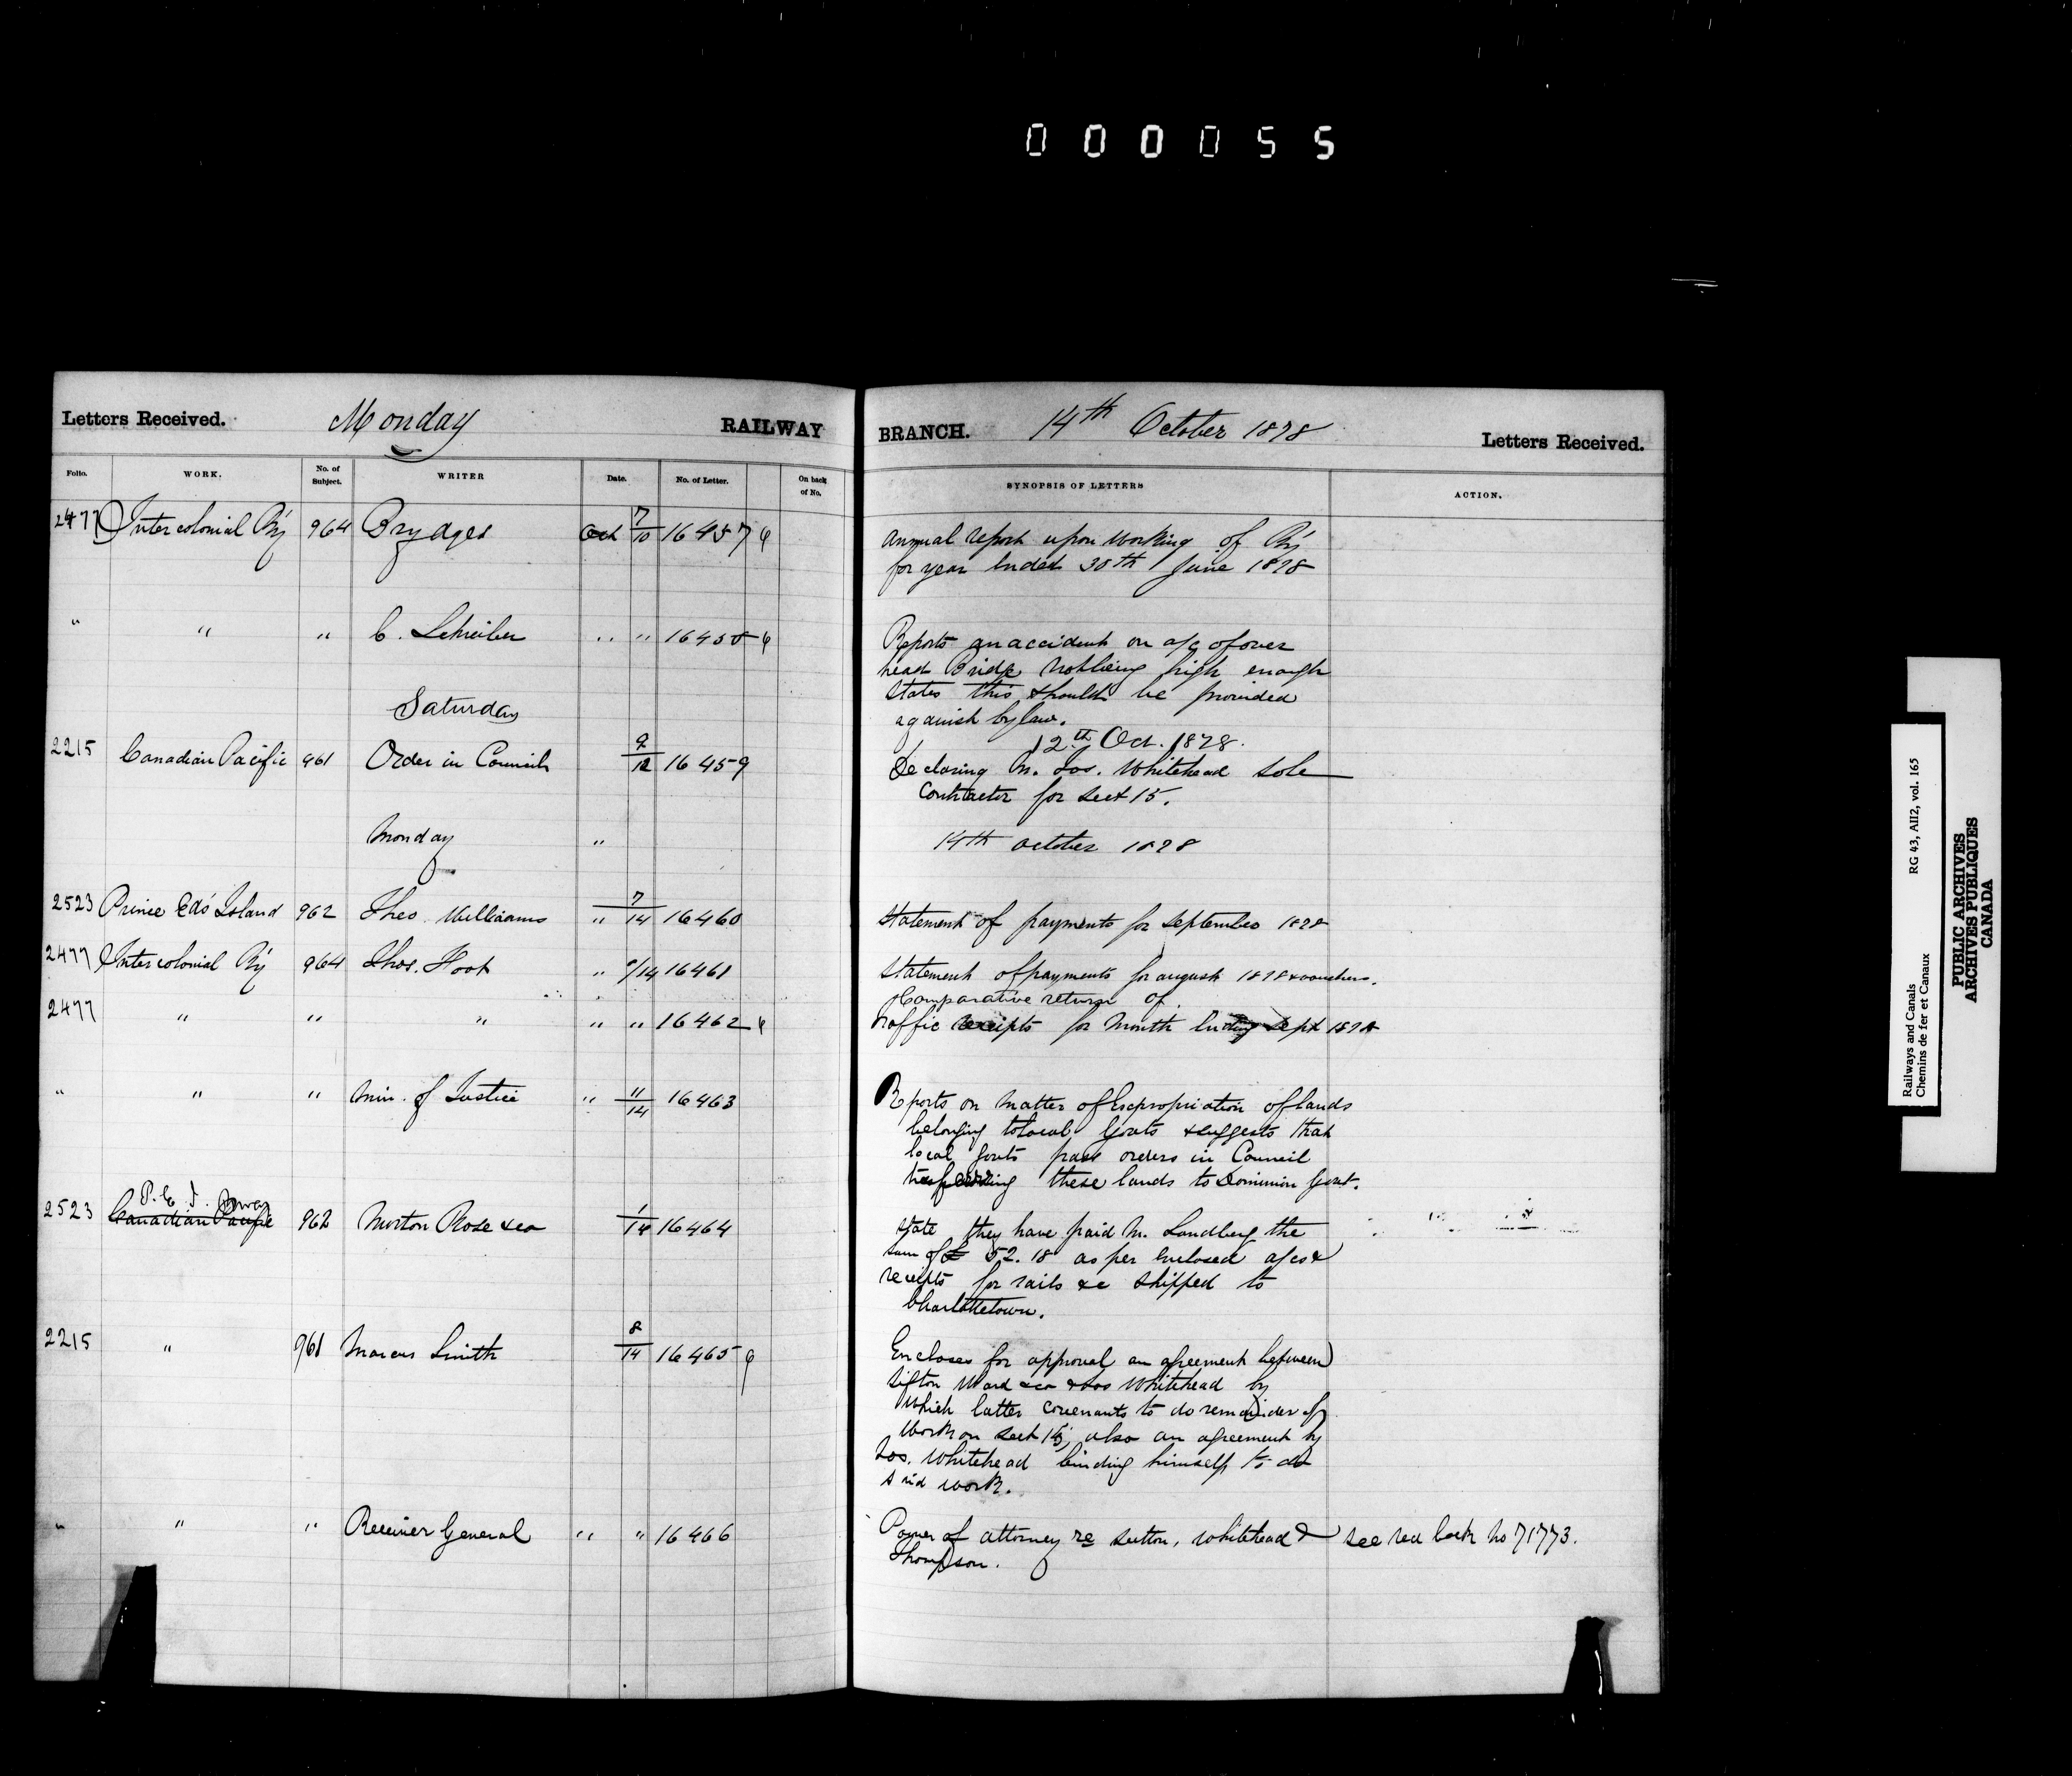 000055
Letters Received. Monday RAILWAY
BRANCH. 14th October 1878 Letters Received.
Folio. WORK. No. of Subject. WRITER Date. No. of Letter. On back of No.
SYNOPSIS OF LETTERS ACTION.
2477 Intercolonial Ry 964 Brydges Oct 7/10 16457
Annual report upon working of Ry
for year ended 30th June 1878
" " " C. Schreiber " " 16458
Reports an accident on a/c of over
head Bridge not being high enough
States this should be provided
against by law.
Saturday
12th Oct. 1878.
2215 Canadian Pacific 961 Order in Council 9/12 16459
Declaring M. Jos. Whitehead sole
Contractor for sect 15.
Monday "
14th October 1878
2523 Prince Ed's Island 962 Theo Williams " 7/14 16460
Statement of payments for September 1878
2477 Intercolonial Ry 964 Thos. Foot " 9/14 16461
Statement of payments for august 1878 & vouchers.
2477 " " " " " 16462
Comparative return of
traffic receipts for Month Ending Sept 1878
" " " Min. of Justice " 11/14 16463
Reports on matter of Expropriation of lands
belonging to local Govts & suggests that
local govts pass orders in Council
transferring these lands to Dominion Govt.
P. E. I.
2523 Canadian Pacific 962 Morton Rose & co 1/14 16464
State they have paid M. Sandberg the
sum of £ 52. 18 as per Enclosed a/cs &
receipts for rails &c shipped to
Charlottetown.
2215 " 961 Marcus Smith 8/14 16465
Encloses for approval an agreement between
Sifton Ward & co & Jos Whitehead by
which latter covenants to do remainder of
work on sect 15, also an agreement by
Jos. Whitehead binding himself to do
said work.
" " " Receiver General " " 16466
Power of attorney re Sutton, Whitehead &
Thompson.
see red back No 71773.
Railways and Canals RG 43, AII2, vol. 165
Chemins de fer et Canaux
PUBLIC ARCHIVES
ARCHIVES PUBLIQUES
CANADA